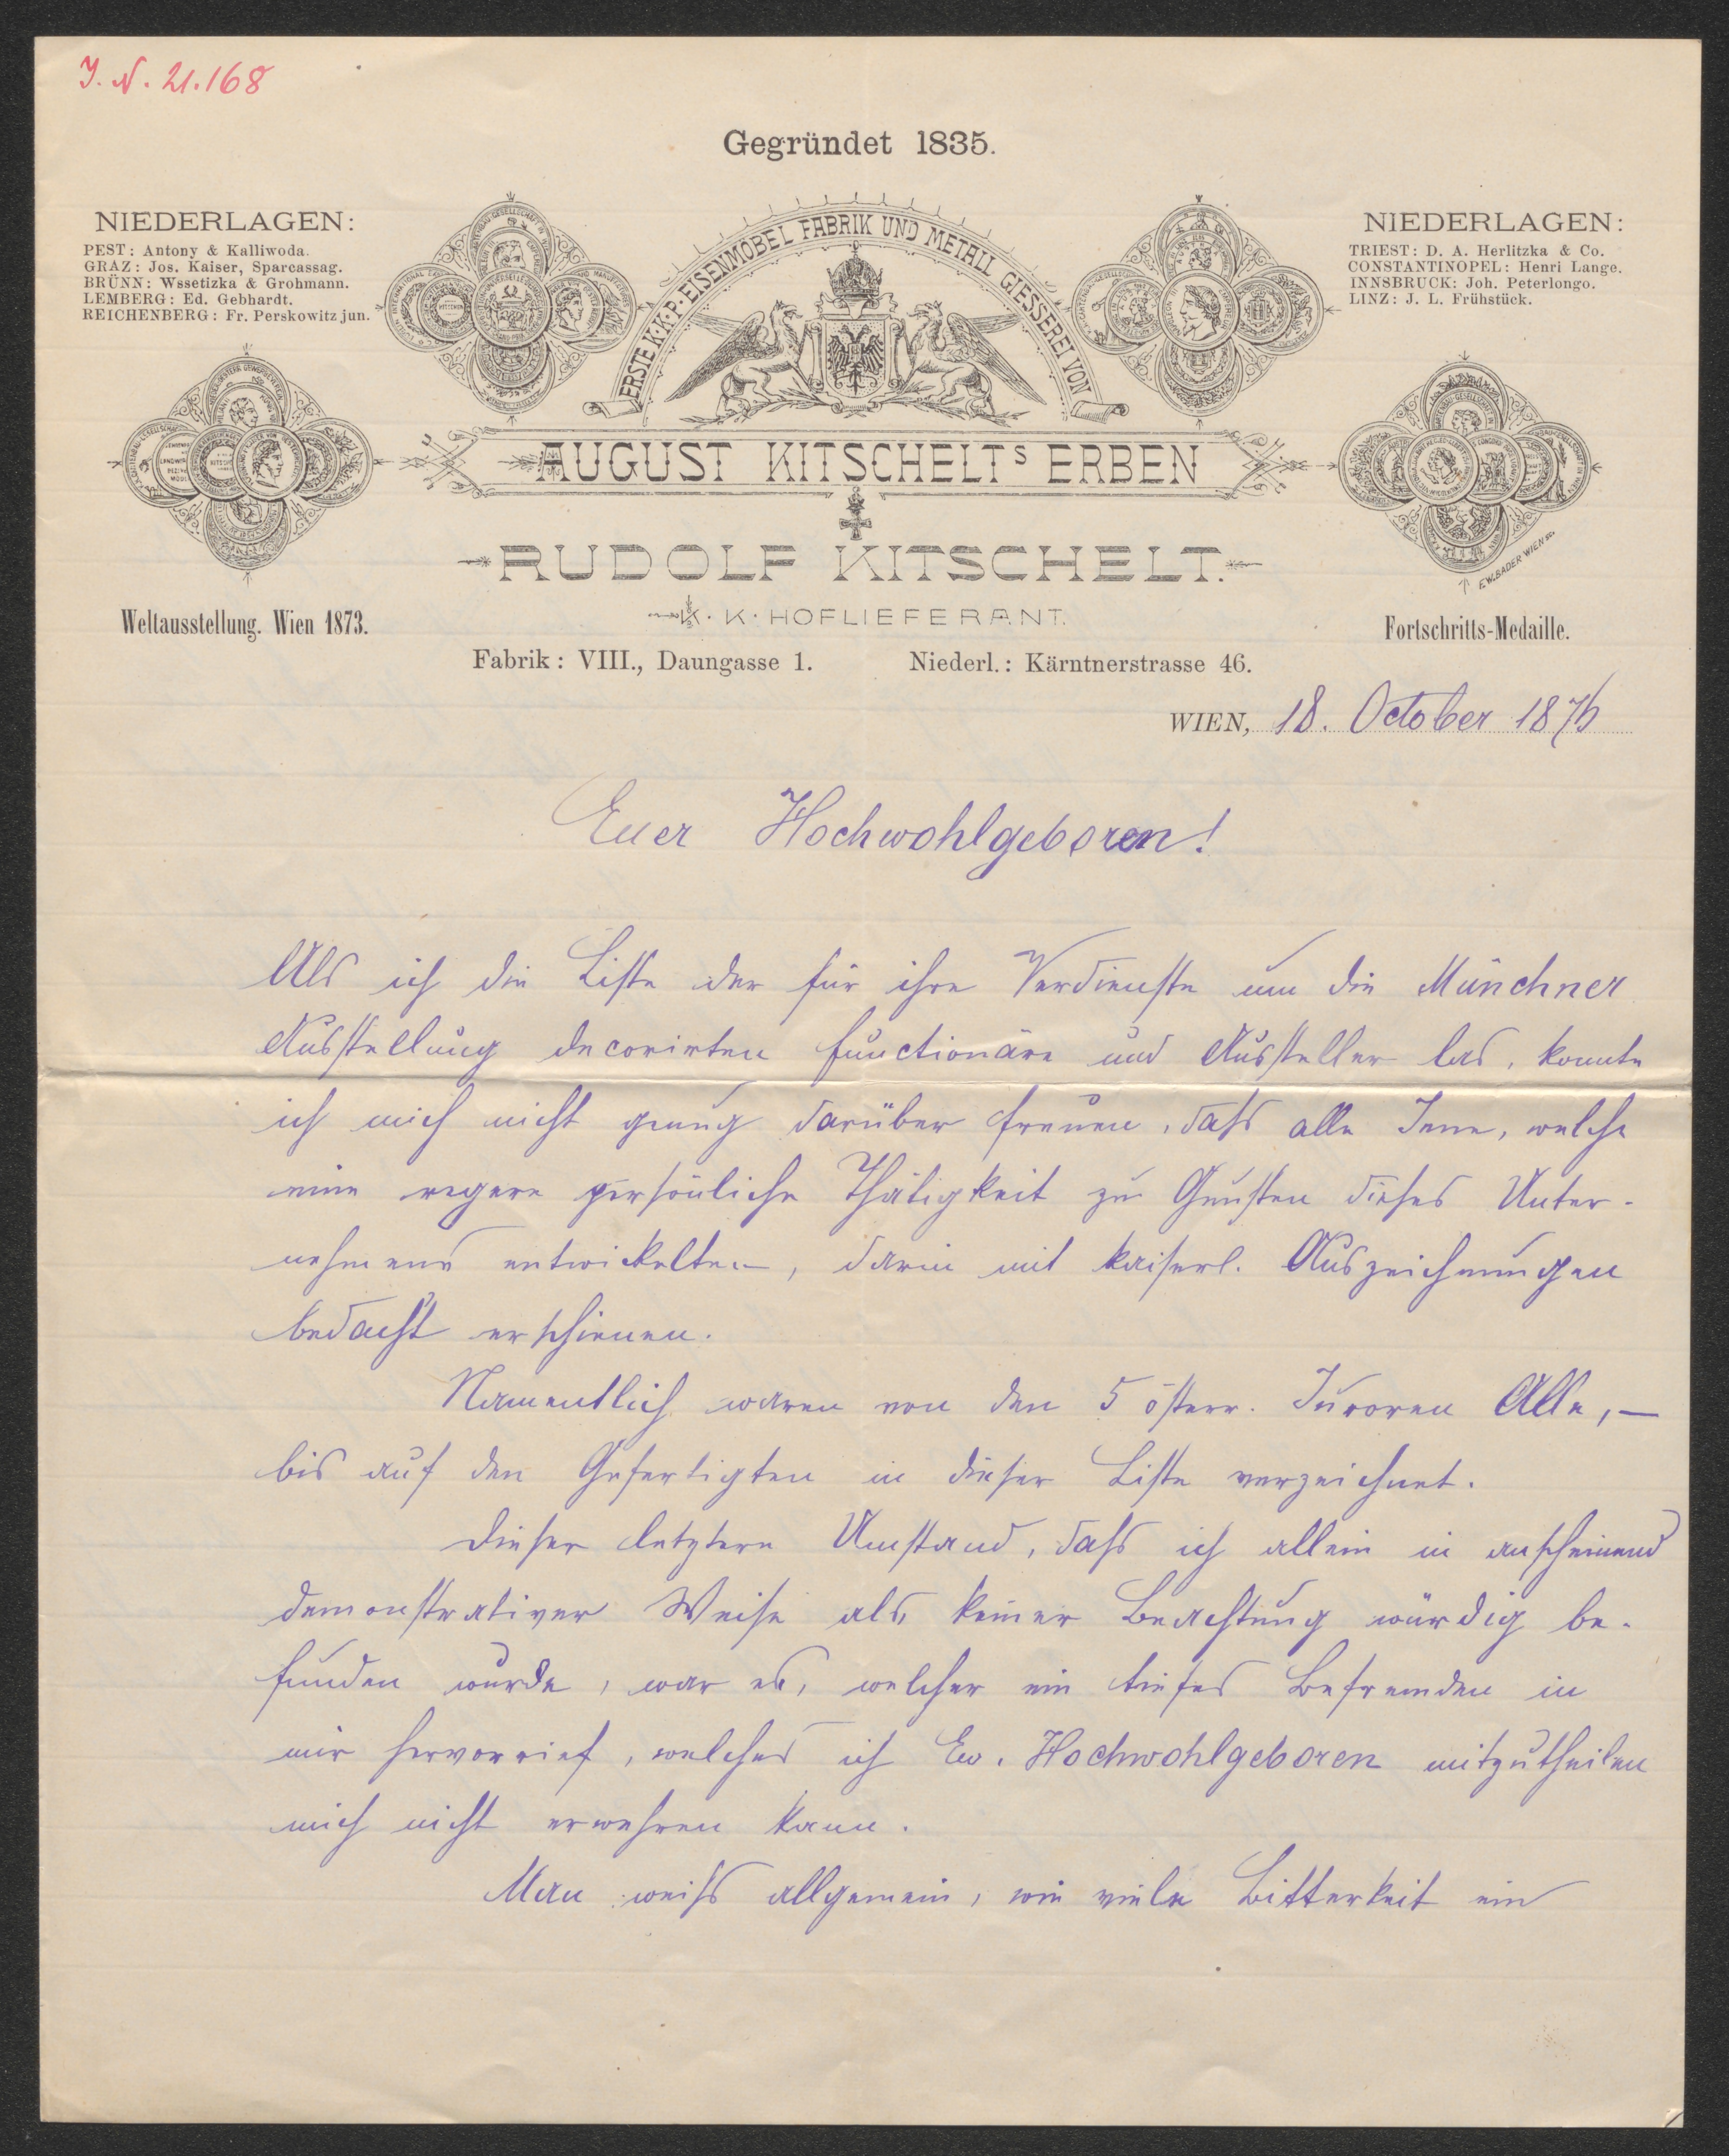 J. N. 21.168
Gegründet 1835.
NIEDERLAGEN:
PEST: Antony & Kalliwoda.
GRAZ: Jos. Kaiser, Sparcassag.
BRÜNN: Wssetizka & Grohmann.
LEMBERG: Ed. Gebhardt.
REICHENBERG: Fr. Perskowitz jun.
ERSTE K. K. P. EISENMÖBEL FABRIK UND METALL GIESSEREI VON
NIEDERLAGEN:
TRIEST: D. A. Herlitzka & Co.
CONSTANTINOPEL: Henri Lange.
INNSBRUCK: Joh. Peterlongo.
LINZ: J. L. Frühstück.
AUGUST KITSCHELTS ERBEN
RUDOLF KITSCHELT.
K. K. HOFLIEFERANT.
F.W. BADER WIEN sc.
Weltausstellung. Wien 1873.
Fortschritts-Medaille.
Fabrik: VIII., Daungasse 1. Niederl.: Kärntnerstrasse 46.
WIEN, 18. October 1876
Euer Hochwohlgeboren!
Als ich die Liste der für ihre Verdienste um die Münchner
Ausstellung decorirten Functionäre und Aussteller las, konnte
ich mich nicht genug darüber freuen, daß alle Jene, welche
eine regere persönliche Thätigkeit zu Gunsten dieses Unter-
nehmens entwickelten, darin mit kaiserl. Auszeichnungen
bedacht erschienen.
Namentlich waren von den 5 österr. Juroren Alle, —
bis auf den Gefertigten in dieser Liste verzeichnet.
Dieser letztere Umstand, daß ich allein in anscheinend
demonstrativer Weise als keiner Beachtung würdig be-
funden wurde, war es, welcher ein tiefes Befremden in
mir hervorrief, welches ich Ew. Hochwohlgeboren mitzutheilen
mich nicht erwehren kann.
Man weiß allgemein, wie viele Bitterkeit ein